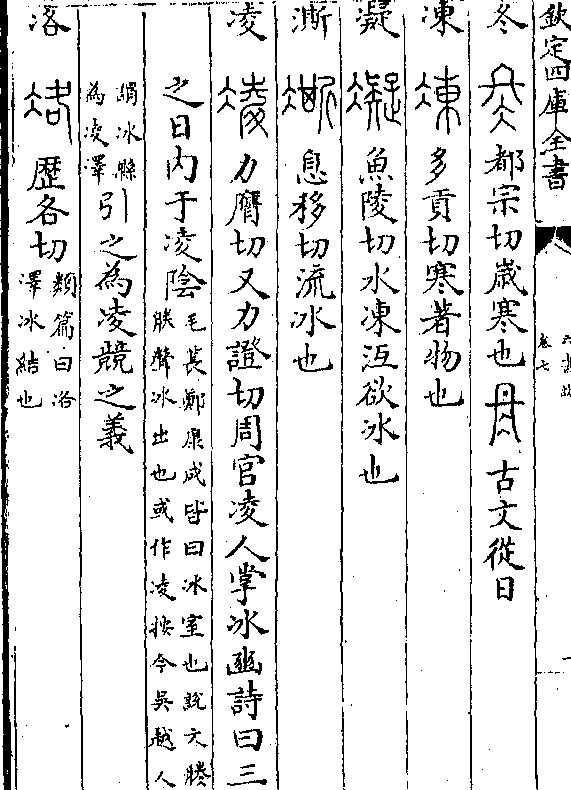 欽定四庫全書
六書故
卷七
冬 都宗切歲寒也 古文從日
凍 多貢切寒著物也
凝 魚陵切水凍冱欲冰也
凘 息移切流冰也
凌 力膺切又力證切周官凌人掌冰豳詩曰三
之日内于凌隂 毛萇鄭康成皆曰冰室也說文㬺
㬺聲冰出也或作凌按今吳越人
謂冰縣
為凌澤 引之為凌兢之義
洛 歷各切 類篇曰洛
澤冰結也